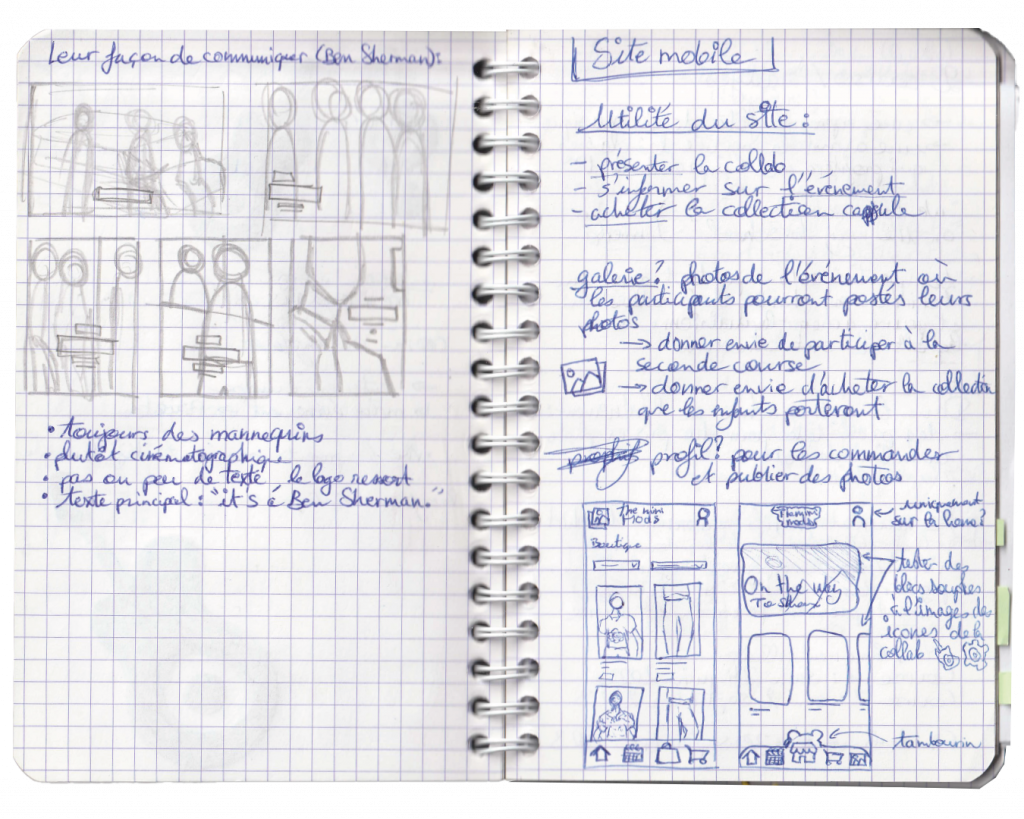 Leur façon de communiquer (Ben Sherman):
• toujours des mannequins
• plutôt cinématographique
• pas ou peu de texte, le logo ressort
• texte principal: "it's a Ben Sherman."
Site mobile
Utilité du site :
- présenter la collab
- s'informer sur l'événement
- acheter la collection capsule
galerie? photos de l'événement où
les participants pourront postés leurs
photos
→ donner envie de participer à la
seconde course
→ donner envie d'acheter la collection
que les enfants porteront
profil? pour les commander
et publier des photos
The mini
Mods
Boutique
The mini
mods
On the way
To
uniquement
sur la home?
tester des
blocs souples
à l'images des
icones de la
collab
tambourin